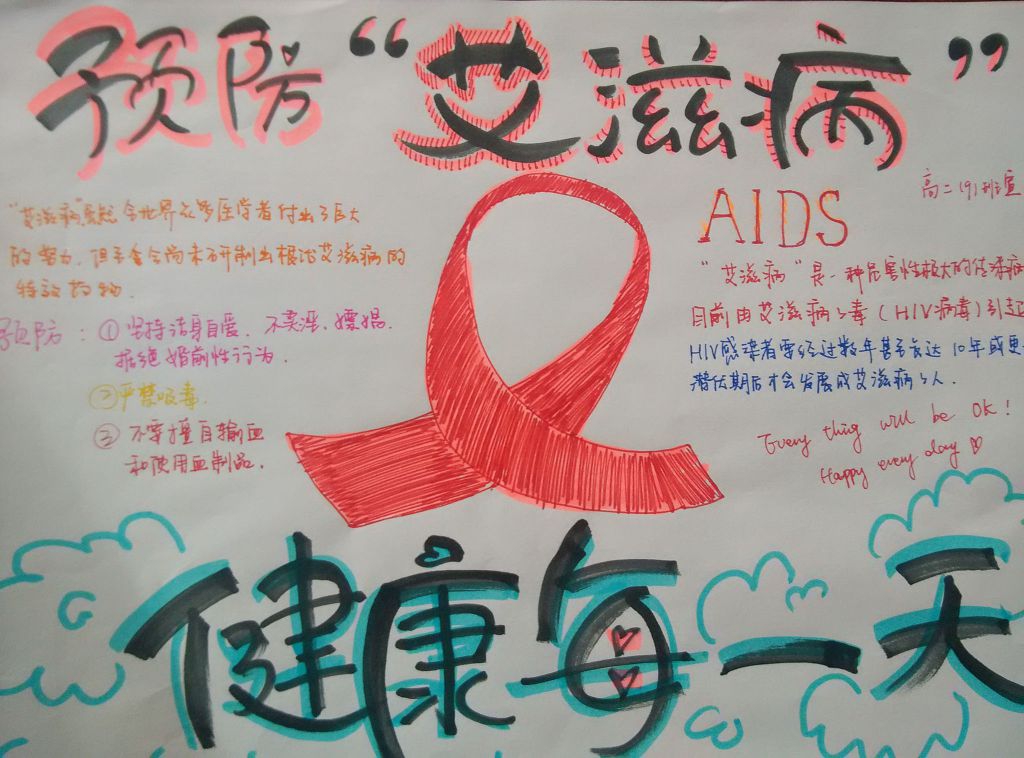 预防“艾滋病”
高二(9)班宣
AIDS
“艾滋病”虽然全世界众多医学者付出了巨大
的努力,但至今尚未研制出根治艾滋病的
特效药物.
预防:①坚持洁身自爱.不卖淫、嫖娼.
拒绝婚前性行为.
②严禁吸毒.
③不要擅自输血
和使用血制品.
“艾滋病”是一种危害性极大的传染病
目前由艾滋病病毒(HIV病毒)引起
HIV感染者要经过数年甚至长达10年或更
潜伏期后才会发展成艾滋病病人.
Every thing will be OK!
Happy every day
健康每一天